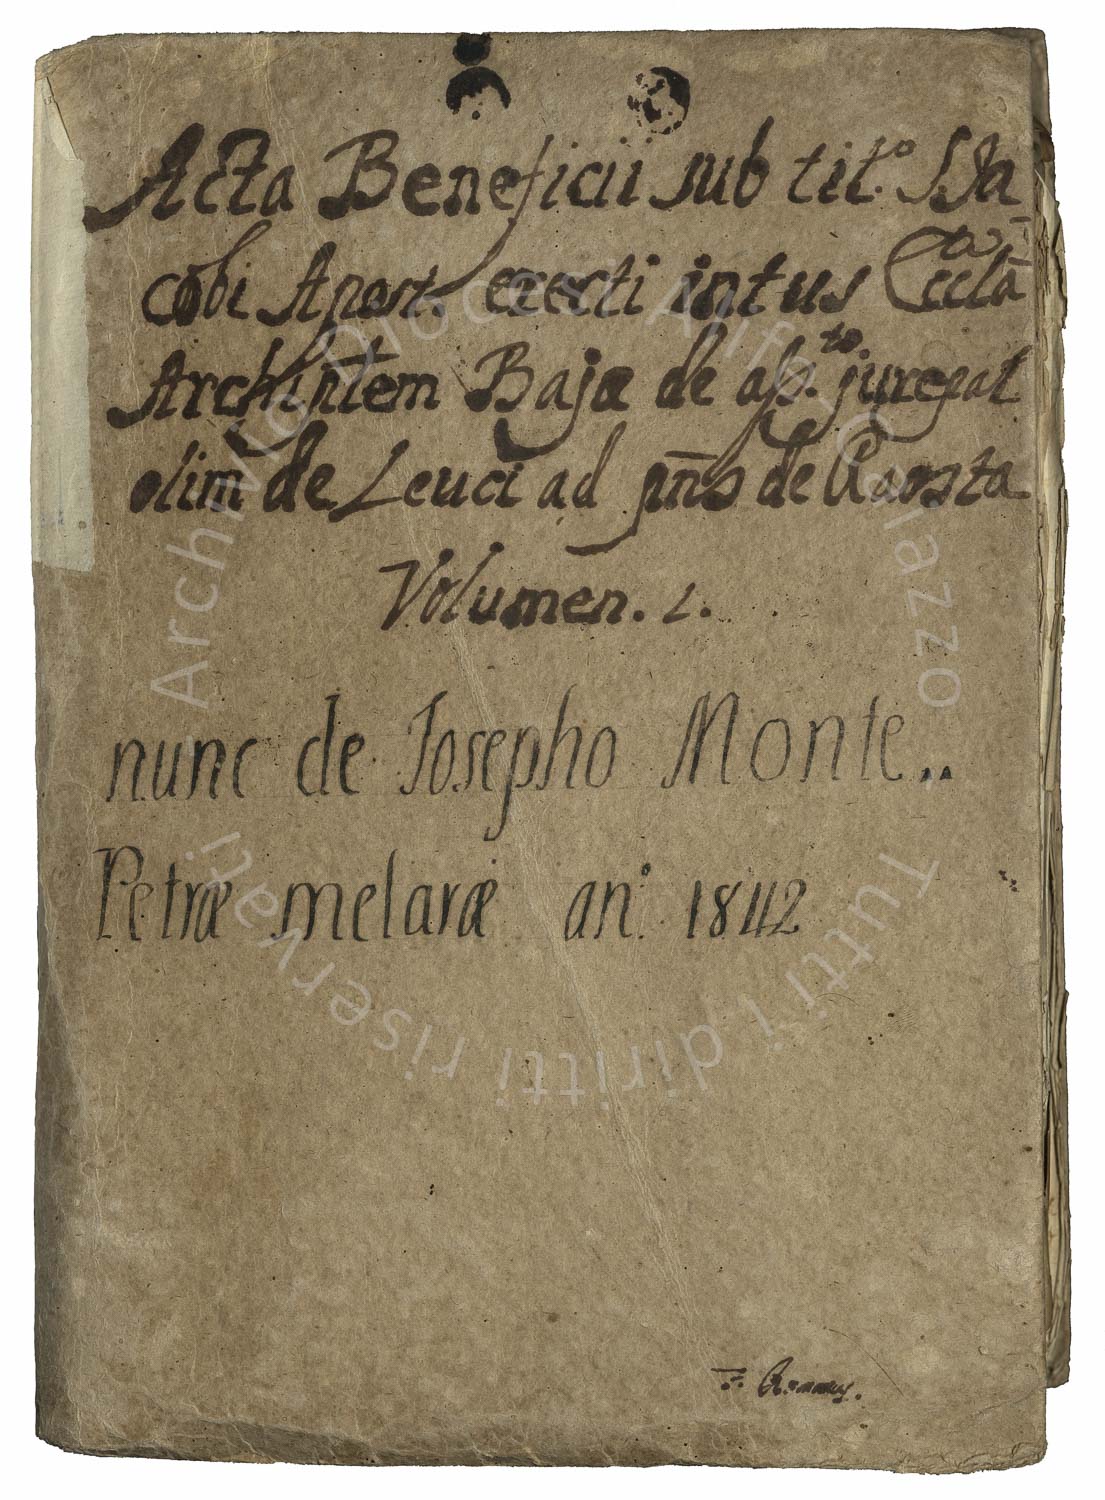 Acta Beneficii sub tit.o S. Ja-
cobi Apost. erecti intus Eccla
ta
Archip̄tem Bajæ de asp.to jurepat
olim de Leuci ad p̄ns de Aaosta
Volumen. 1.
nunc de Josepho Monte..
Petræ melaræ an.o 1842
Archivio Diocesi Alife - Caiazzo - Tutti i diritti riservati